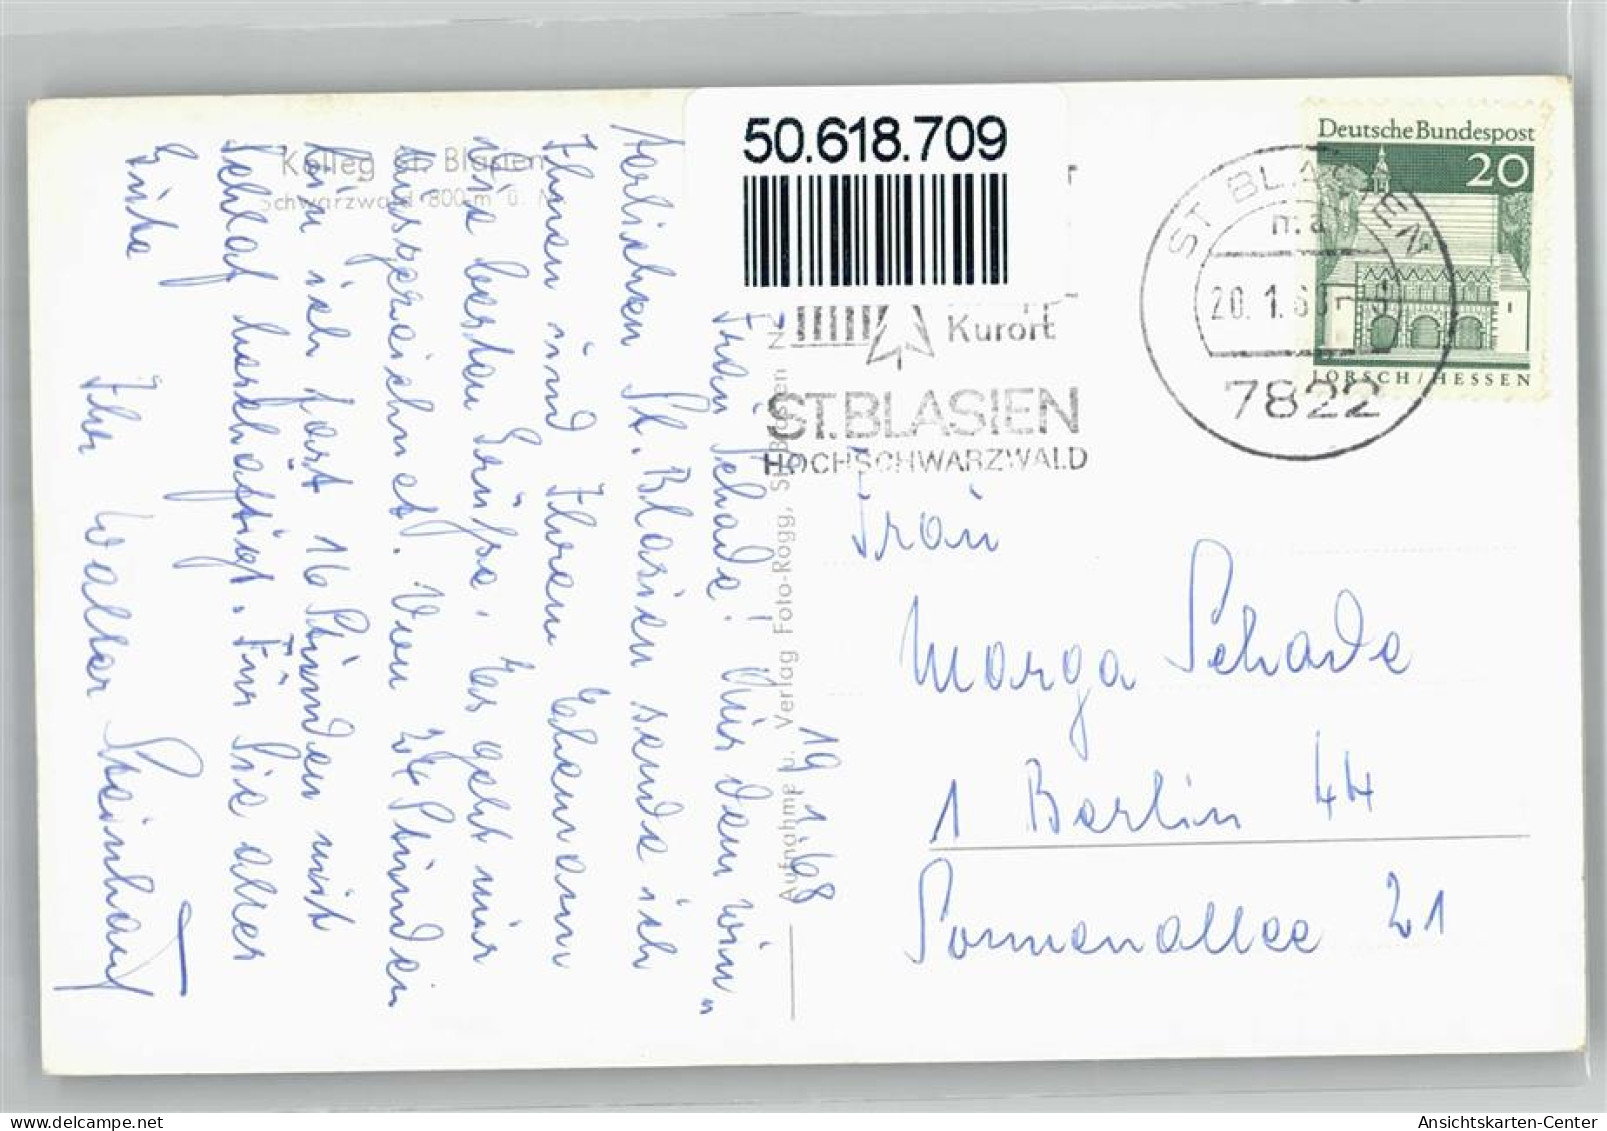 50.618.709
Deutsche Bundespost
20
LORSCH/HESSEN
ST BLASIEN
20. 1. 6
7822
Kurort
ST. BLASIEN
HOCHSCHWARZWALD
Kolleg St. Blasien
Schwarzwald 800 m ü. M
Aufnahme u. Verlag Foto-Rogg, St. Blasien
19.1.68
Frau Schade! Aus dem win„
terlichen St. Blasien sende ich
Ihnen und Ihrem Ehemann
die besten Grüsse. Es geht mir
ausgezeichnet. Von 24 Stunden
bin ich fast 16 Stunden mit
Schlaf beschäftigt. Für Sie alles
Gute
Ihr Walter Steinhauf
Frau
Marga Schade
1 Berlin 44
Sonnenallee 21
Ansichtskarten-Center